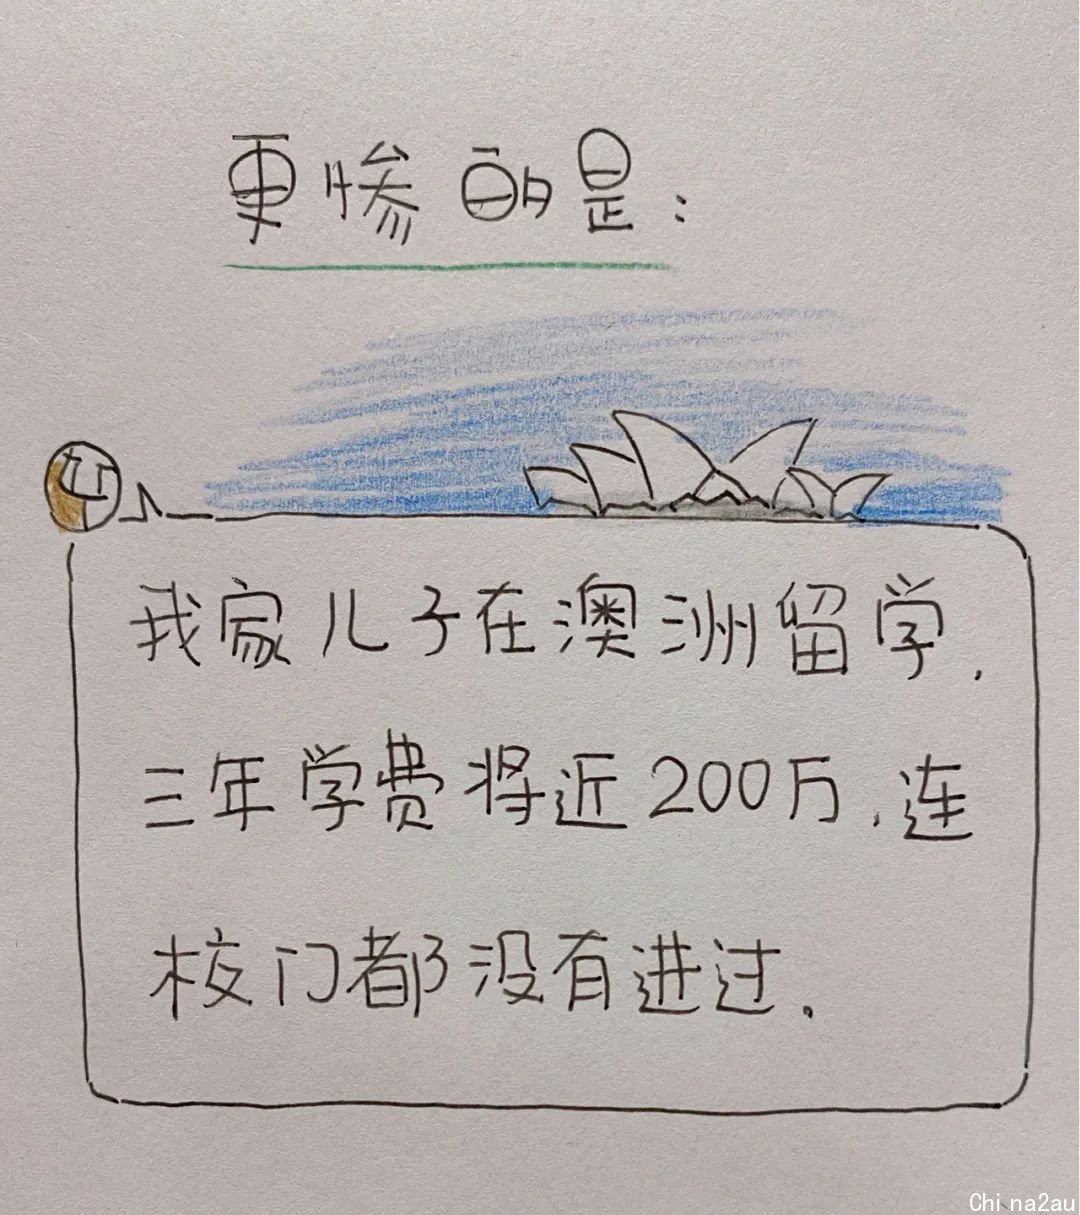 更惨的是：
我家儿子在澳洲留学，
三年学费将近200万，连
校门都没有进过。
China2au